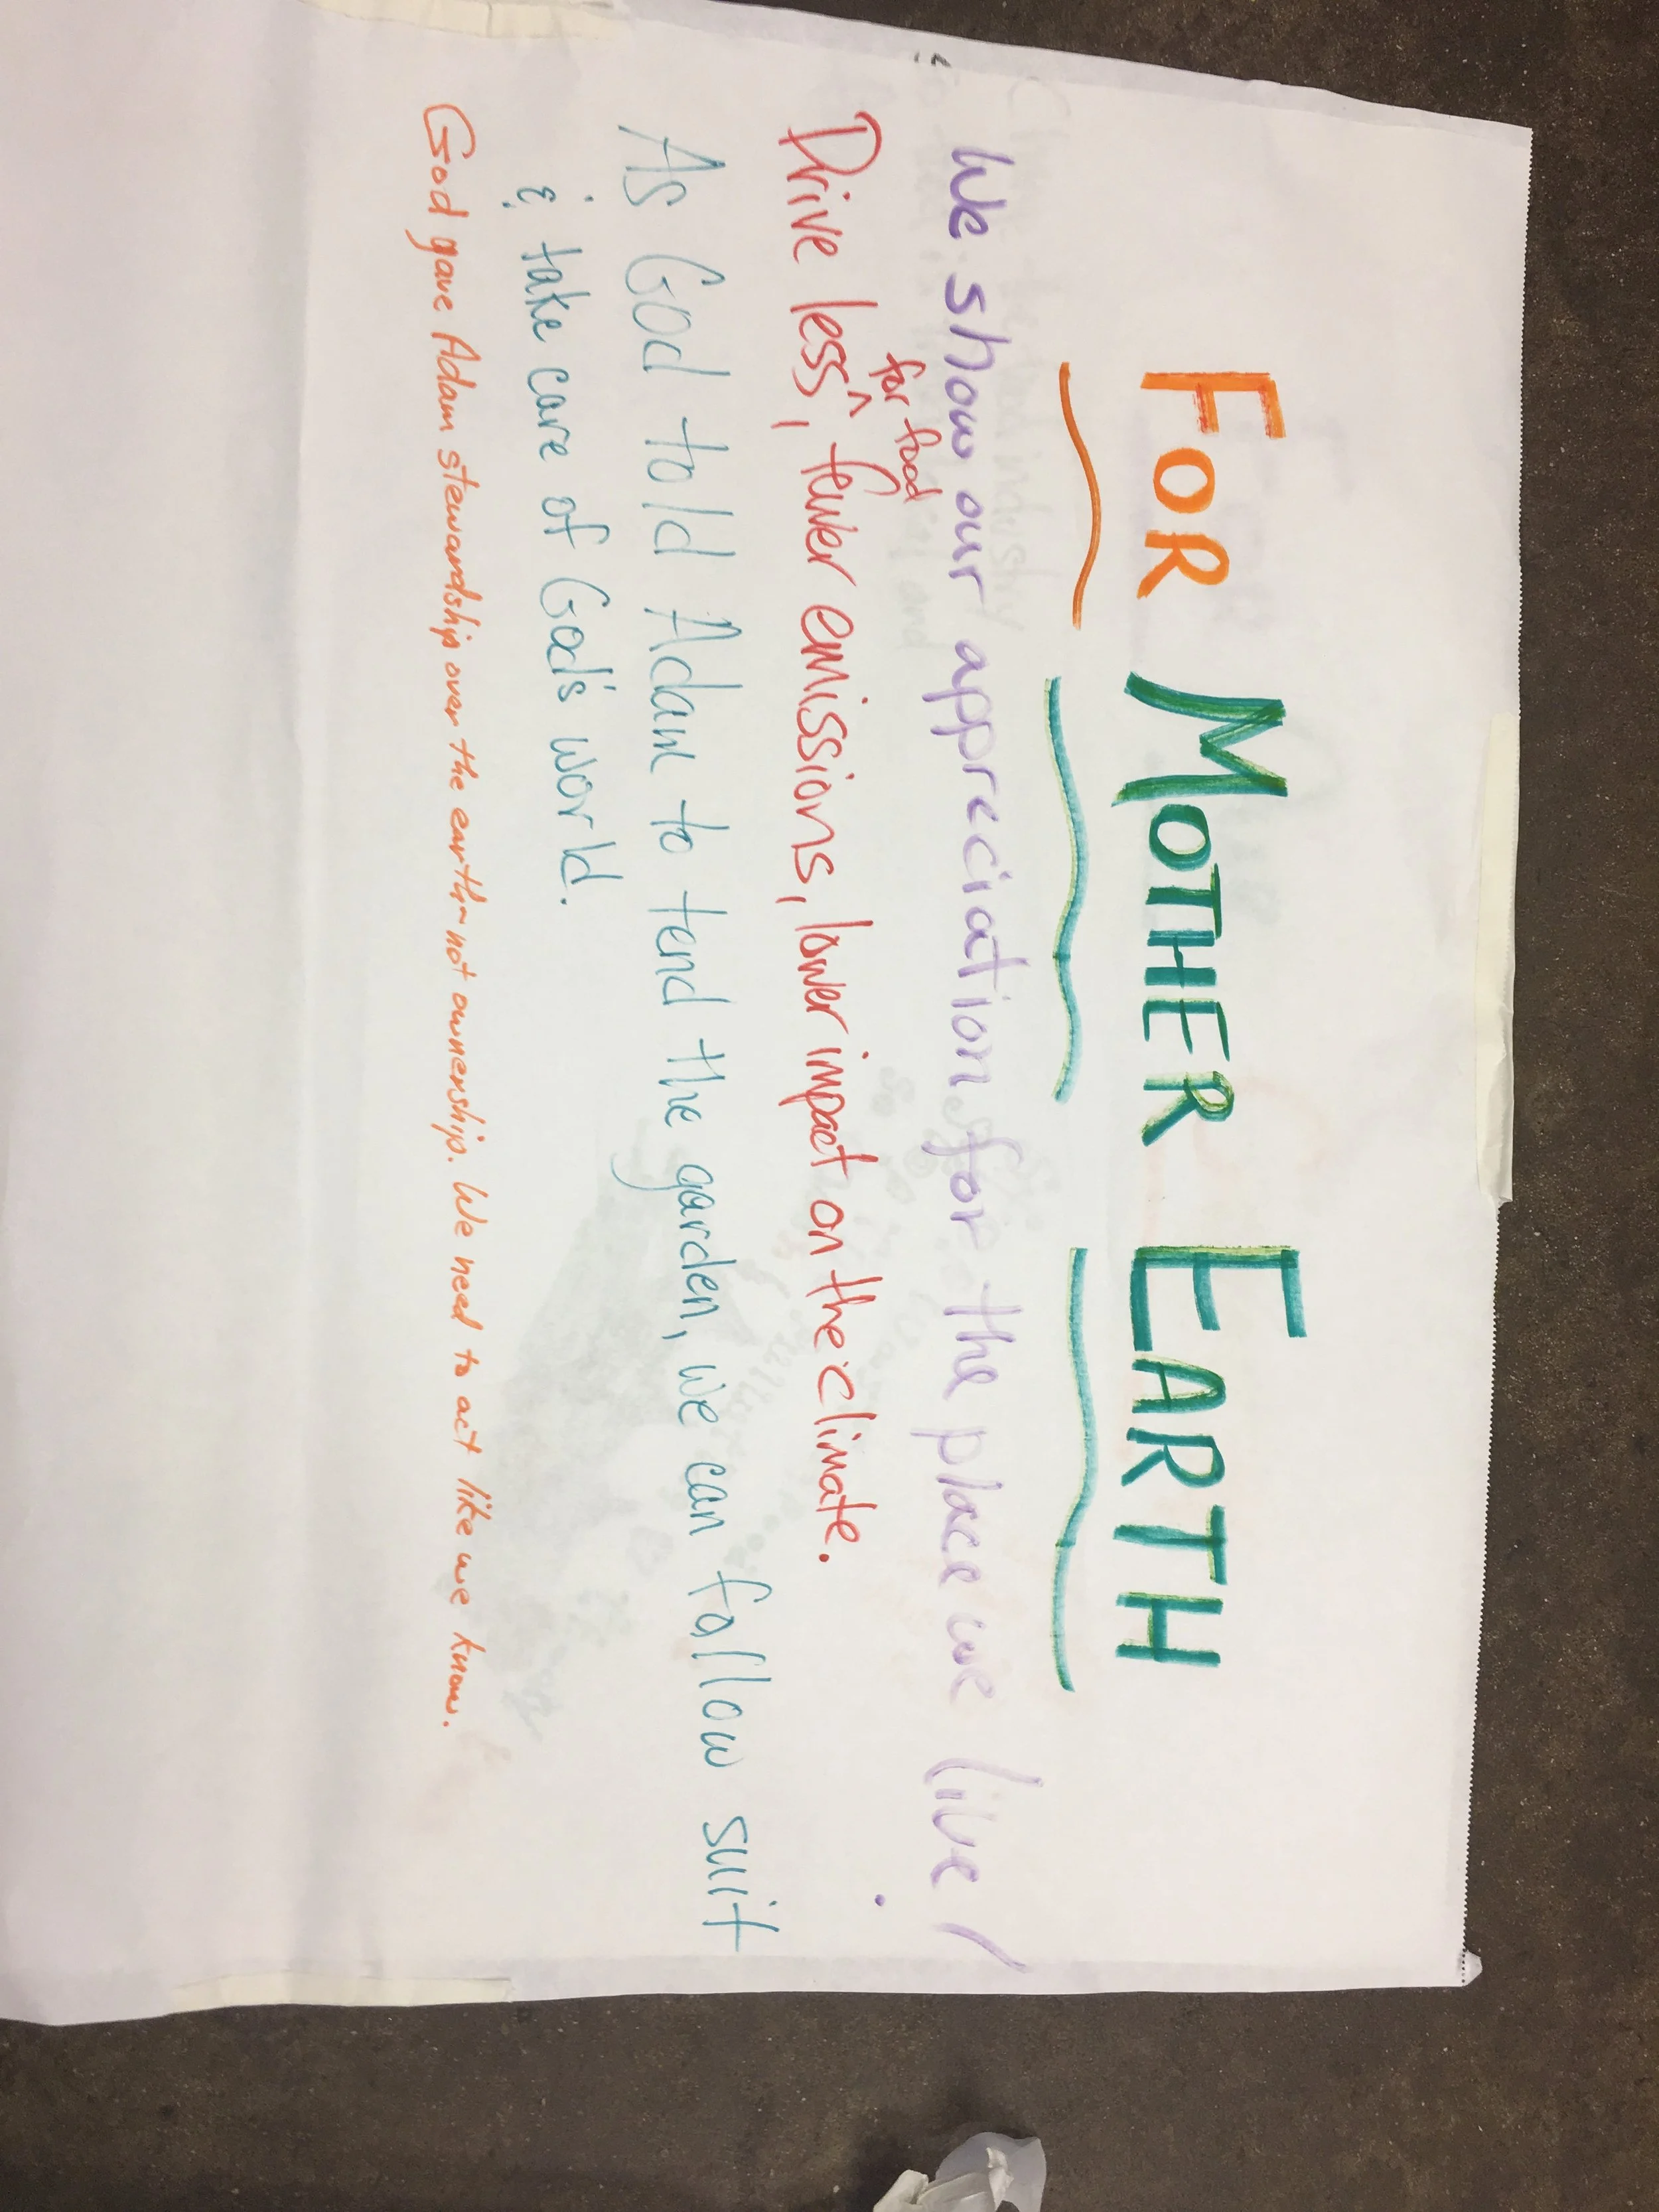 FOR MOTHER EARTH
We show our appreciation for the place we live /
Drive less ^ for food, fewer emissions, lower impact on the climate.
As God told Adam to tend the garden, we can follow suit
& take care of God's world.
God gave Adam stewardship over the earth - not ownership. We need to act like we know.